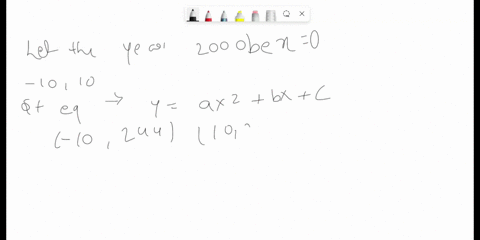 Let the year 2000 be x=0
-10, 10
Qt eq → y = ax2 + bx + c
(-10, 244) (10,